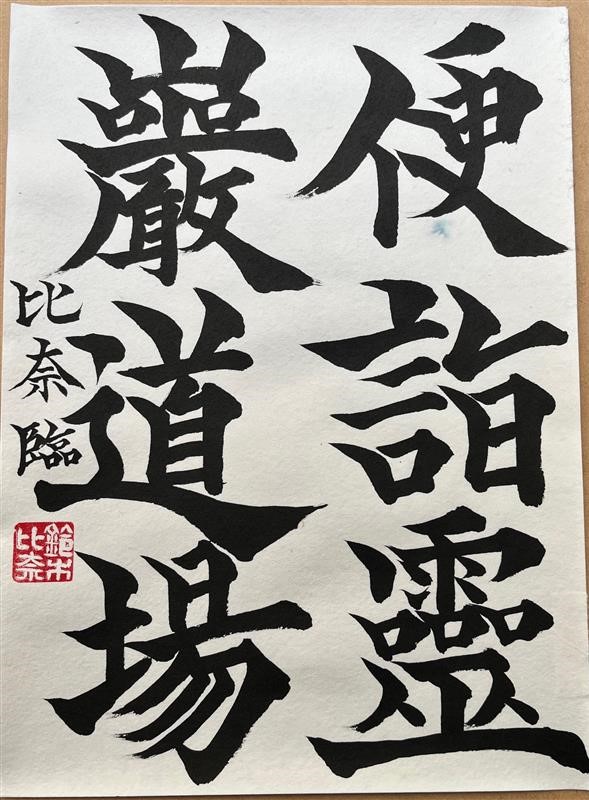 便詣靈
巖道場
比奈臨
鈴木
比奈